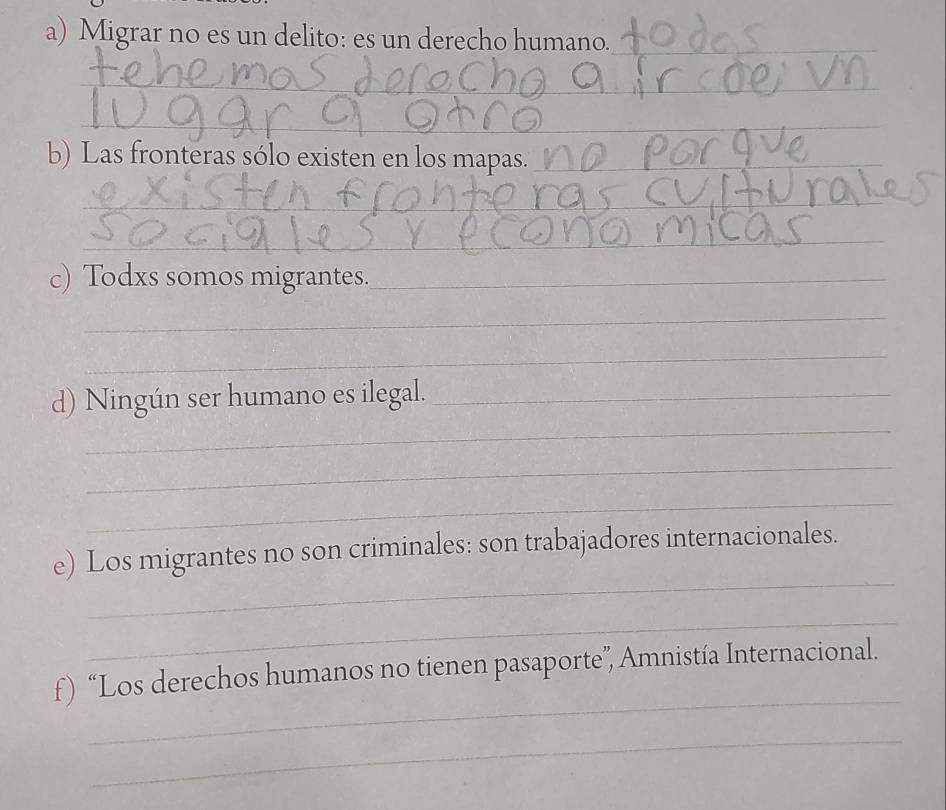 a) Migrar no es un delito: es un derecho humano. todos
tenemos derecho a ir de un
lugar a otro
b) Las fronteras sólo existen en los mapas. no porque
existen fronteras culturales
sociales y economicas
c) Todxs somos migrantes.
d) Ningún ser humano es ilegal.
e) Los migrantes no son criminales: son trabajadores internacionales.
f) “Los derechos humanos no tienen pasaporte”, Amnistía Internacional.